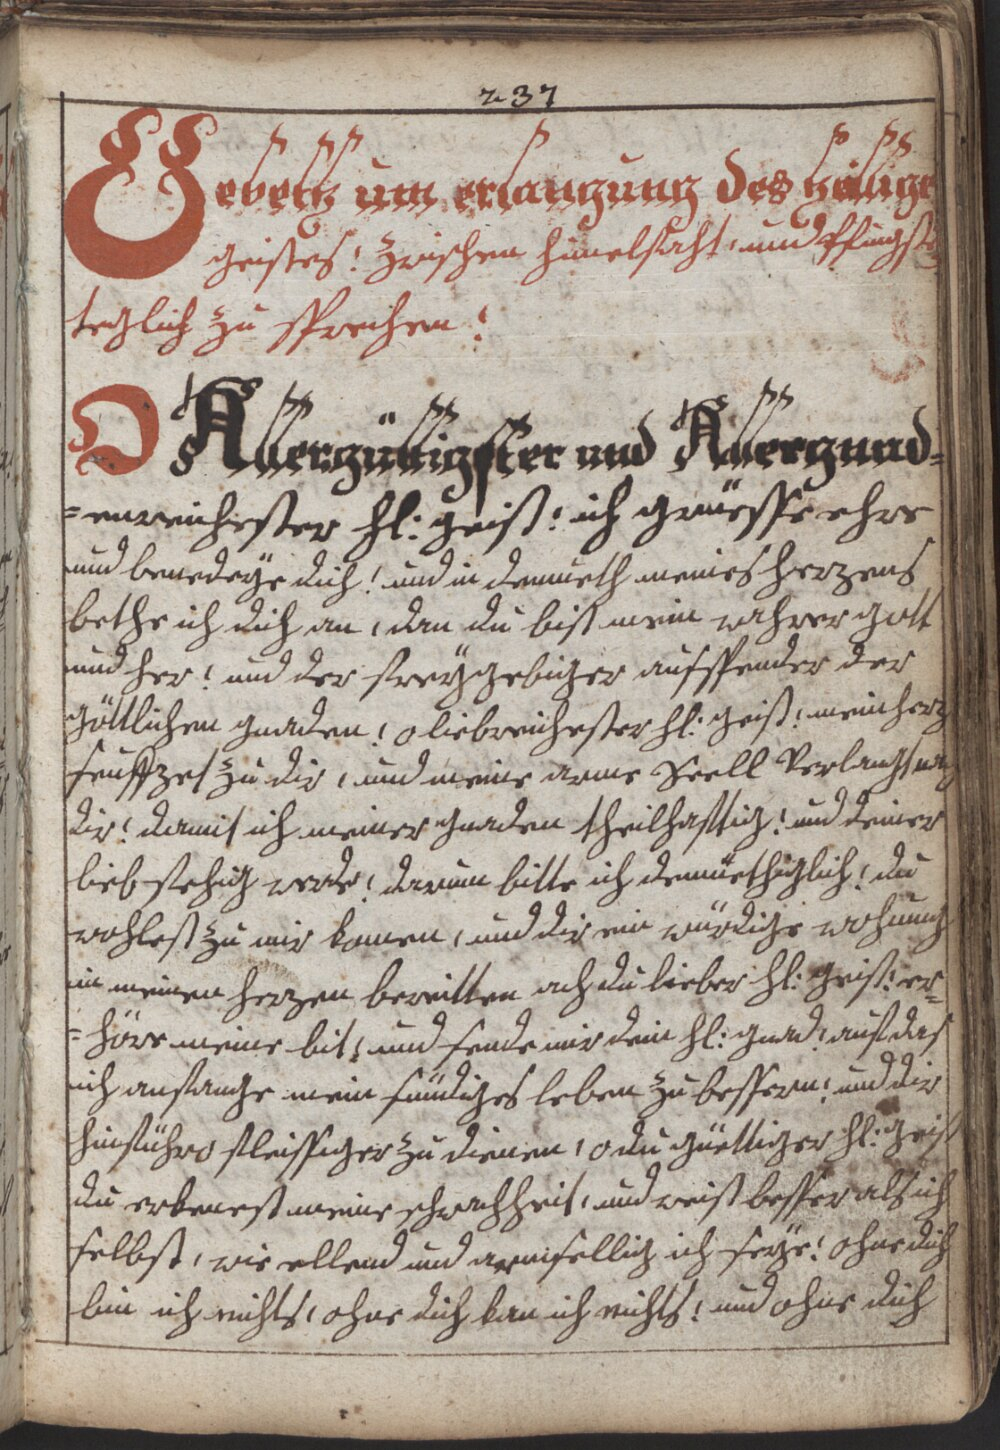 237
Gebett um erlangung des heilige
geistes! zwischen himelfaht, und Pfingste
teglich zu sprechen!
O Allergüttigster und Allergnad=
=enreichester hl: geist! ich grüesse ehre
und benedeye dich! und in demueth meines herzens
bethe ich dich an, dan du bist mein wahrer gott
und her! und der freygebiger aufspender der
göttlichen gnaden! o liebreichester hl: geist! mein herz
seuffzet zu dir, und meine arme Seell Verlangt nach
dir! damit ich meiner gnaden theilhafftig! und deiner
lieb fehig werde! darum bitte ich demüethiglich! du
wohlest zu mir komen, und dir ein würdige wohnung
in meinen herzen bereitten ach du lieber hl: geist: er=
=höre meine bit, und sende mir dein hl: gnad! auf das
ich anfange mein sündiges leben zu bessern! und dir
hinführo fleissiger zu dienen, o du güettiger hl: geist
du erkenest meine schwachheit, und weist besser als ich
selbst, wie ellend und armsellig ich seye! ohne dich
bin ich nichts, ohne dich kan ich nichts! und ohne dich